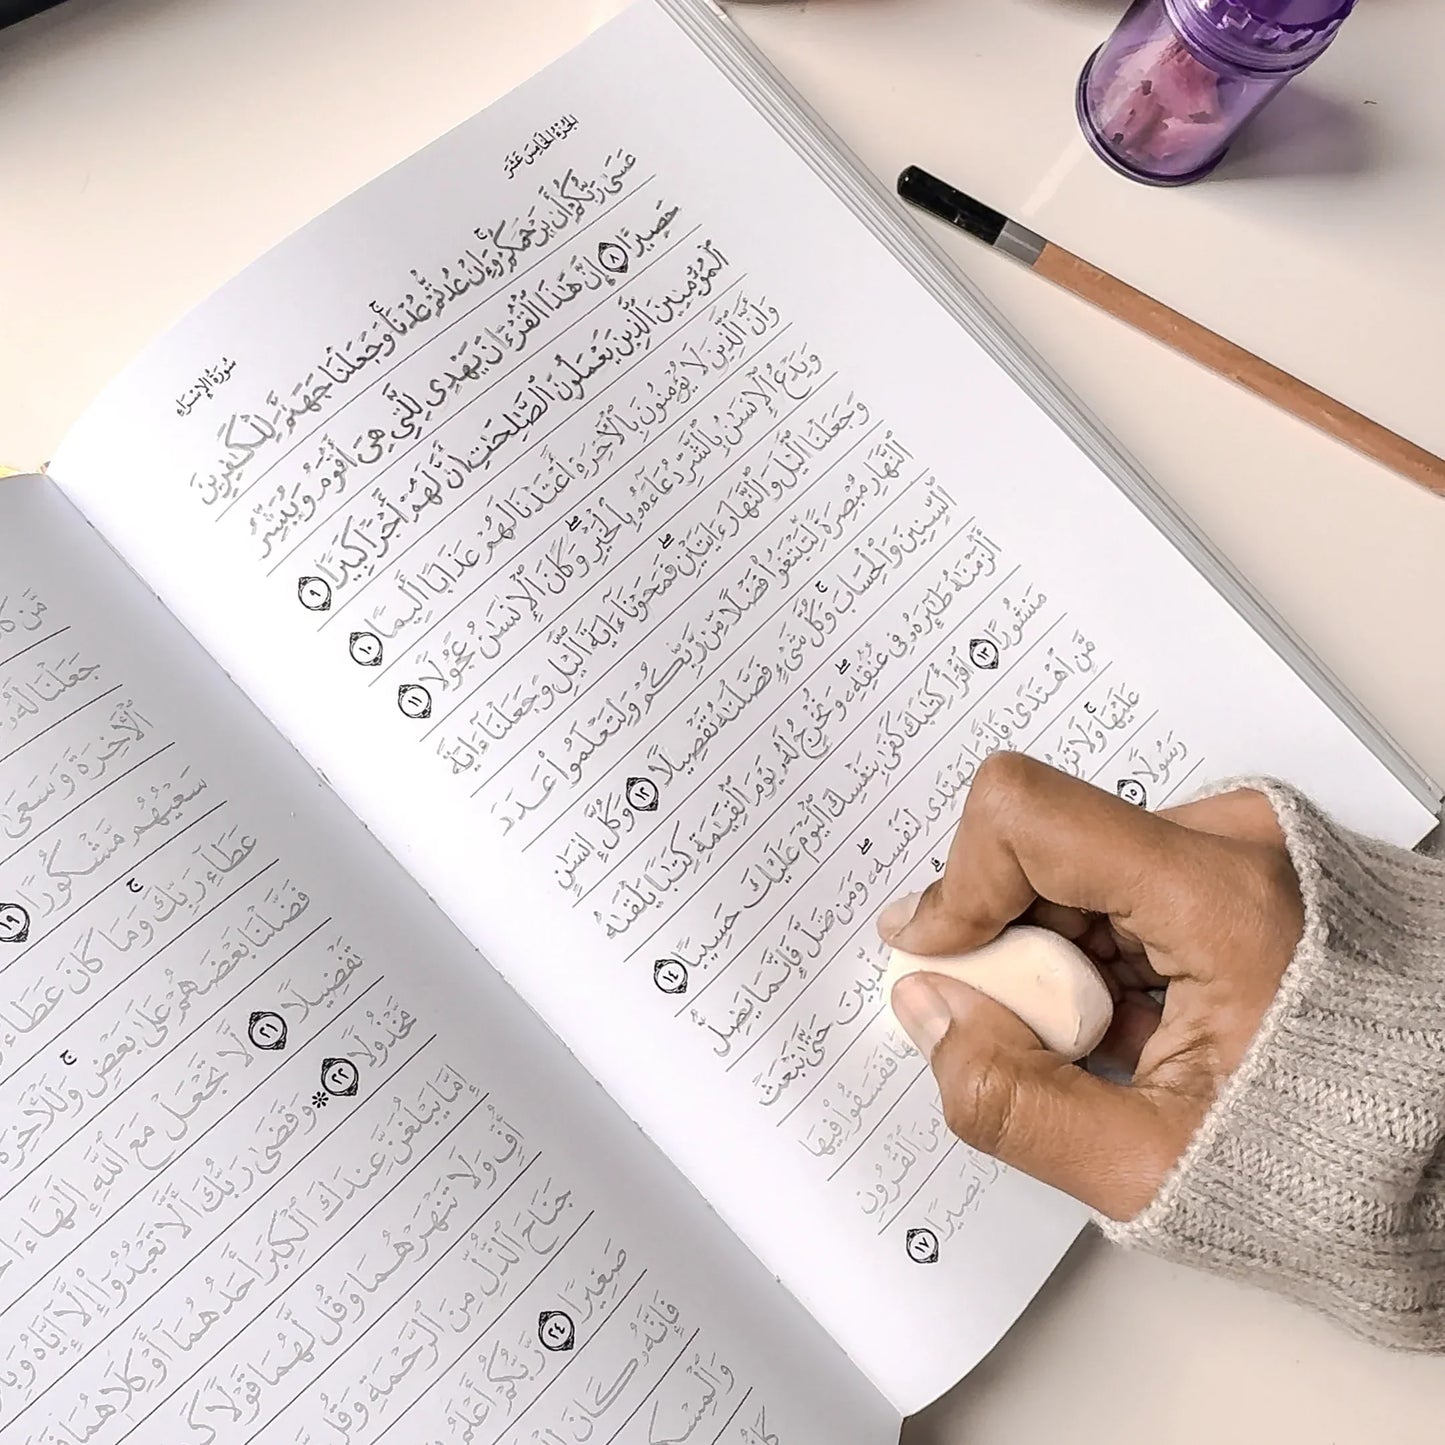 سُورَةُ الإِسْرَاءِ
الجُزْءُ الخَامِسَ عَشَرَ
عَسَىٰ رَبُّكُمْ أَن يَرْحَمَكُمْ ۚ وَإِنْ عُدتُّمْ عُدْنَا ۚ وَجَعَلْنَا جَهَنَّمَ لِلْكَٰفِرِينَ
حَصِيرًا ٨ إِنَّ هَٰذَا ٱلْقُرْءَانَ يَهْدِى لِلَّتِى هِىَ أَقْوَمُ وَيُبَشِّرُ
ٱلْمُؤْمِنِينَ ٱلَّذِينَ يَعْمَلُونَ ٱلصَّٰلِحَٰتِ أَنَّ لَهُمْ أَجْرًا كَبِيرًا ٩
وَأَنَّ ٱلَّذِينَ لَا يُؤْمِنُونَ بِٱلْءَاخِرَةِ أَعْتَدْنَا لَهُمْ عَذَابًا أَلِيمًا ١٠
وَيَدْعُ ٱلْإِنسَٰنُ بِٱلشَّرِّ دُعَآءَهُۥ بِٱلْخَيْرِ ۖ وَكَانَ ٱلْإِنسَٰنُ عَجُولًا ١١
وَجَعَلْنَا ٱلَّيْلَ وَٱلنَّهَارَ ءَايَتَيْنِ ۖ فَمَحَوْنَآ ءَايَةَ ٱلَّيْلِ وَجَعَلْنَآ ءَايَةَ
ٱلنَّهَارِ مُبْصِرَةً لِّتَبْتَغُوا۟ فَضْلًا مِّن رَّبِّكُمْ وَلِتَعْلَمُوا۟ عَدَدَ
ٱلسِّنِينَ وَٱلْحِسَابَ ۚ وَكُلَّ شَىْءٍ فَصَّلْنَٰهُ تَفْصِيلًا ١٢ وَكُلَّ إِنسَٰنٍ
أَلْزَمْنَٰهُ طَٰٓئِرَهُۥ فِى عُنُقِهِۦ ۖ وَنُخْرِجُ لَهُۥ يَوْمَ ٱلْقِيَٰمَةِ كِتَٰبًا يَلْقَىٰهُ
مَنشُورًا ١٣ ٱقْرَأْ كِتَٰبَكَ كَفَىٰ بِنَفْسِكَ ٱلْيَوْمَ عَلَيْكَ حَسِيبًا ١٤
مَّنِ ٱهْتَدَىٰ فَإِنَّمَا يَهْتَدِى لِنَفْسِهِۦ ۖ وَمَن ضَلَّ فَإِنَّمَا يَضِلُّ
عَلَيْهَا ۚ وَلَا تَزِرُ حَتَّىٰ نَبْعَثَ
رَسُولًا ١٥ فَفَسَقُوا۟ فِيهَا
مِنَ ٱلْقُرُونِ
بَصِيرًا ١٧
مَّن كَانَ
جَعَلْنَا لَهُۥ
ٱلْءَاخِرَةَ وَسَعَىٰ
سَعْيُهُم مَّشْكُورًا ١٩
عَطَآءِ رَبِّكَ ۚ وَمَا كَانَ عَطَآءُ
فَضَّلْنَا بَعْضَهُمْ عَلَىٰ بَعْضٍ ۚ وَلَلْءَاخِرَةُ
تَفْضِيلًا ٢١ لَّا تَجْعَلْ مَعَ ٱللَّهِ إِلَٰهًا ءَاخَرَ
مَّخْذُولًا ٢٢ ۞ وَقَضَىٰ رَبُّكَ أَلَّا تَعْبُدُوٓا۟ إِلَّآ إِيَّاهُ
إِمَّا يَبْلُغَنَّ عِندَكَ ٱلْكِبَرَ أَحَدُهُمَآ أَوْ كِلَاهُمَا
أُفٍّ وَلَا تَنْهَرْهُمَا وَقُل لَّهُمَا قَوْلًا
جَنَاحَ ٱلذُّلِّ مِنَ ٱلرَّحْمَةِ وَقُل
صَغِيرًا ٢٤ رَّبُّكُمْ أَعْلَمُ
فَإِنَّهُۥ كَانَ